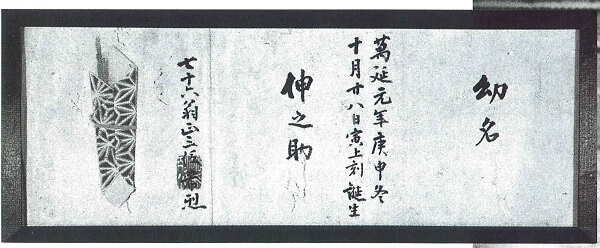 幼名
萬延元年庚申冬
十月廿八日寅上刻誕生
伸之助
七十六翁正三